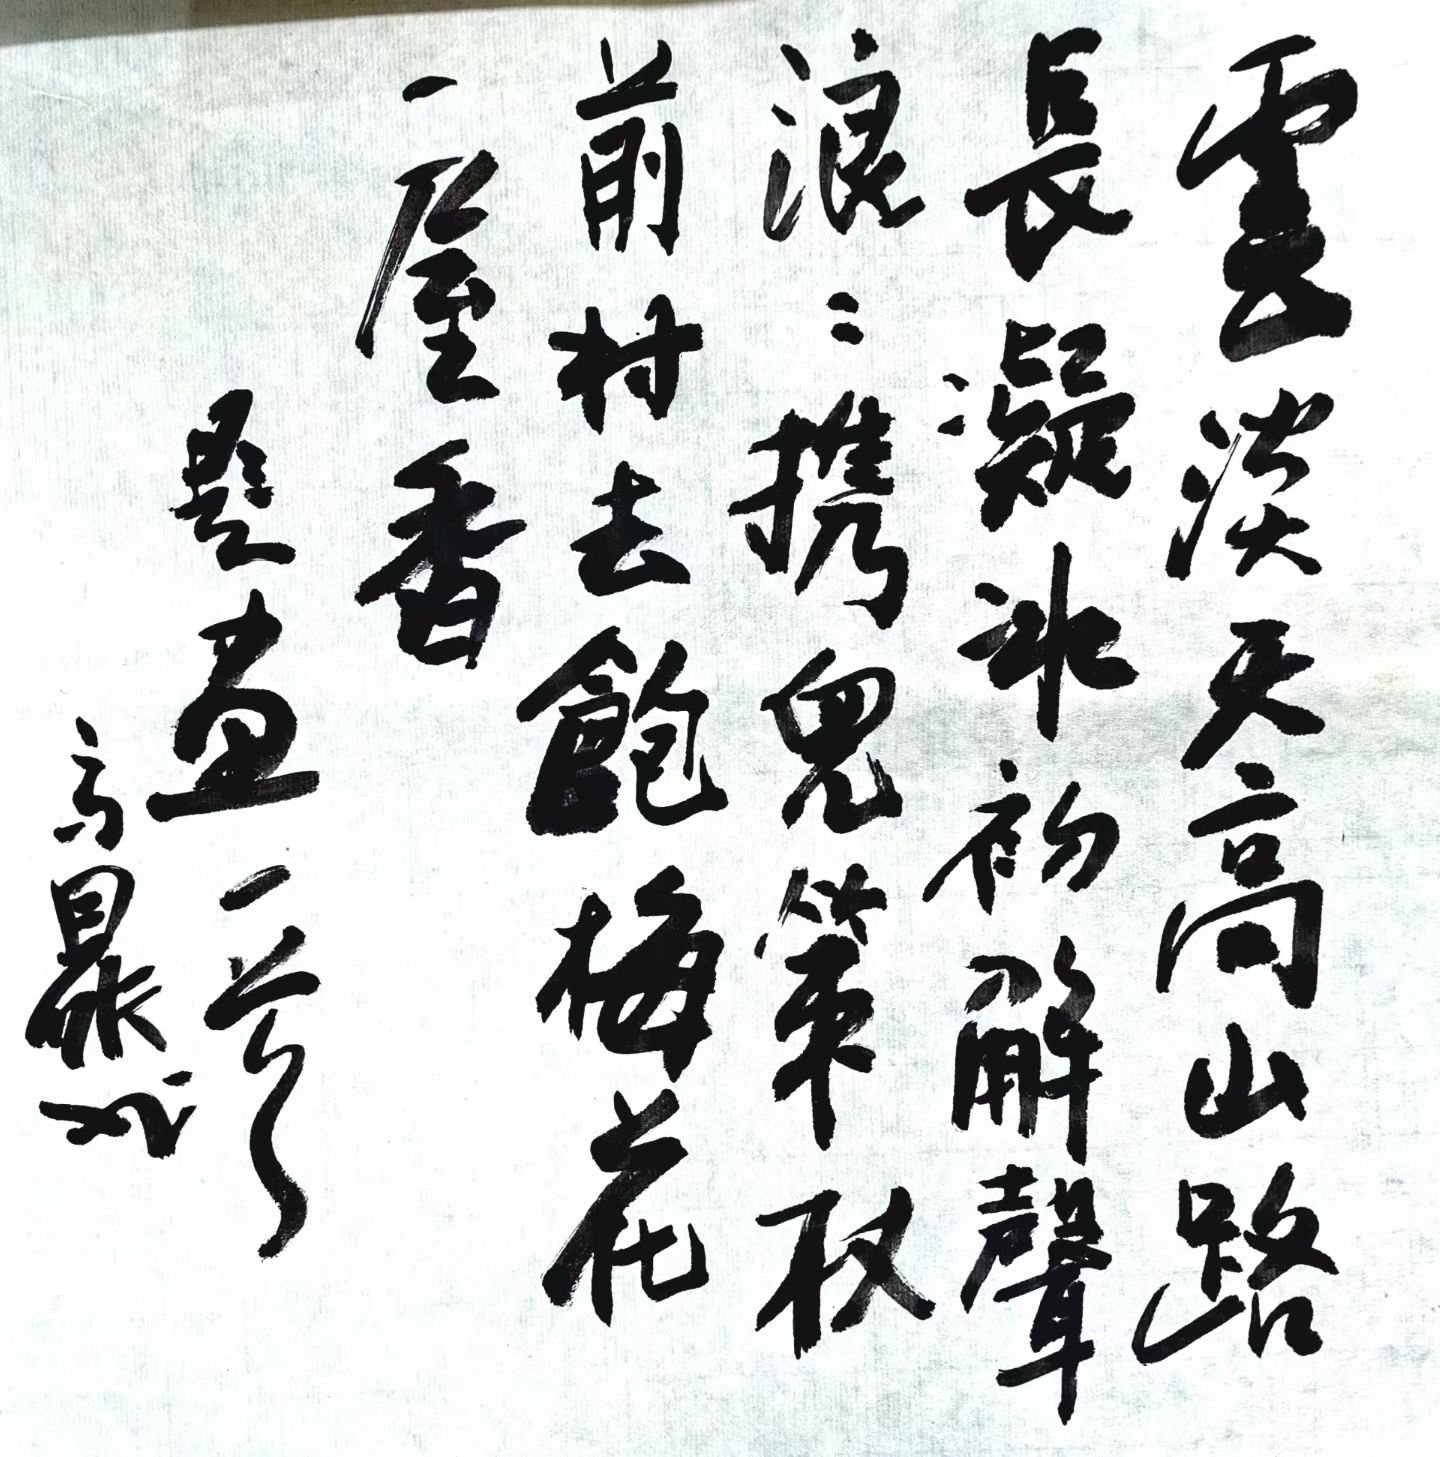 雲淡天高山路
長凝冰初解聲
浪〻携兒策杖
前村去飽梅花
一屋香
題畫一首